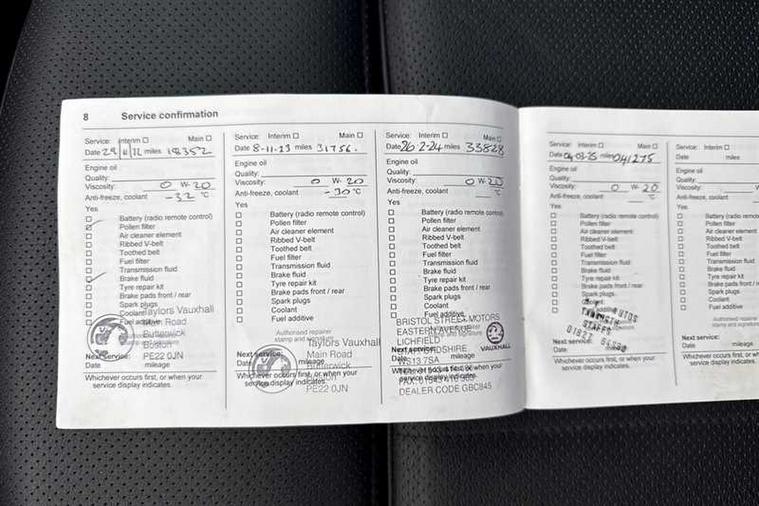 8 Service confirmation
Service: Interim Main
Date miles 18352
Engine oil
Quality:
Viscosity: 0 W-20
Anti-freeze, coolant -32 °C
Yes
Battery (radio remote control)
Pollen filter
Air cleaner element
Ribbed V-belt
Toothed belt
Fuel filter
Transmission fluid
Brake fluid
Tyre repair kit
Brake pads front / rear
Spark plugs
Coolant
Fuel additive
Taylors Vauxhall
Main Road
Butterwick
Boston
PE22 0JN
Next service:
Date:
Whichever occurs first, or when your
service display indicates.
Service: Interim Main
Date 8-11-23 miles 31756.
Engine oil
Quality:
Viscosity: 0 W-20
Anti-freeze, coolant -30 °C
Yes
Battery (radio remote control)
Pollen filter
Air cleaner element
Ribbed V-belt
Toothed belt
Fuel filter
Transmission fluid
Brake fluid
Tyre repair kit
Brake pads front / rear
Spark plugs
Coolant
Fuel additive
Authorised repairer
stamp and signature
Taylors Vauxhall
Main Road
Butterwick
Boston
PE22 0JN
Next service:
Date: mileage
Whichever occurs first, or when your
service display indicates.
Service: Interim Main
Date 26-2-24 miles 33828
Engine oil
Quality:
Viscosity: 0 W-20
Anti-freeze, coolant °C
Yes
Battery (radio remote control)
Pollen filter
Air cleaner element
Ribbed V-belt
Toothed belt
Fuel filter
Transmission fluid
Brake fluid
Tyre repair kit
Brake pads front / rear
Spark plugs
Coolant
Fuel additive
BRISTOL STREET MOTORS
EASTERN AVENUE
LICHFIELD
STAFFORDSHIRE
WS13 7SA
VAUXHALL
Next service:
Date: mileage
Whichever occurs first, or when your
service display indicates.
DEALER CODE GBC845
Service: Interim Main
Date 04-03-25 miles 041275
Engine oil
Quality:
Viscosity: 0 W-20
Anti-freeze, coolant °C
Yes
Battery (radio remote control)
Pollen filter
Air cleaner element
Ribbed V-belt
Toothed belt
Fuel filter
Transmission fluid
Brake fluid
Tyre repair kit
Brake pads front / rear
Spark plugs
TAMWORTH
STAFFS
Next service:
Date: mileage
Whichever occurs first, or when your
service display indicates.
Service: Interim
Date miles
Engine oil
Quality:
Viscosity:
Anti-freeze, coolant
Yes
Battery (radio remote
Pollen filter
Air cleaner element
Ribbed V-belt
Toothed belt
Fuel filter
Transmission fluid
Brake fluid
Tyre repair kit
Brake pads front / rear
Spark plugs
Coolant
Fuel additive
Authorised
stamp and signature
Next service:
Date: mileage
Whichever occurs first, or
service display indicates.